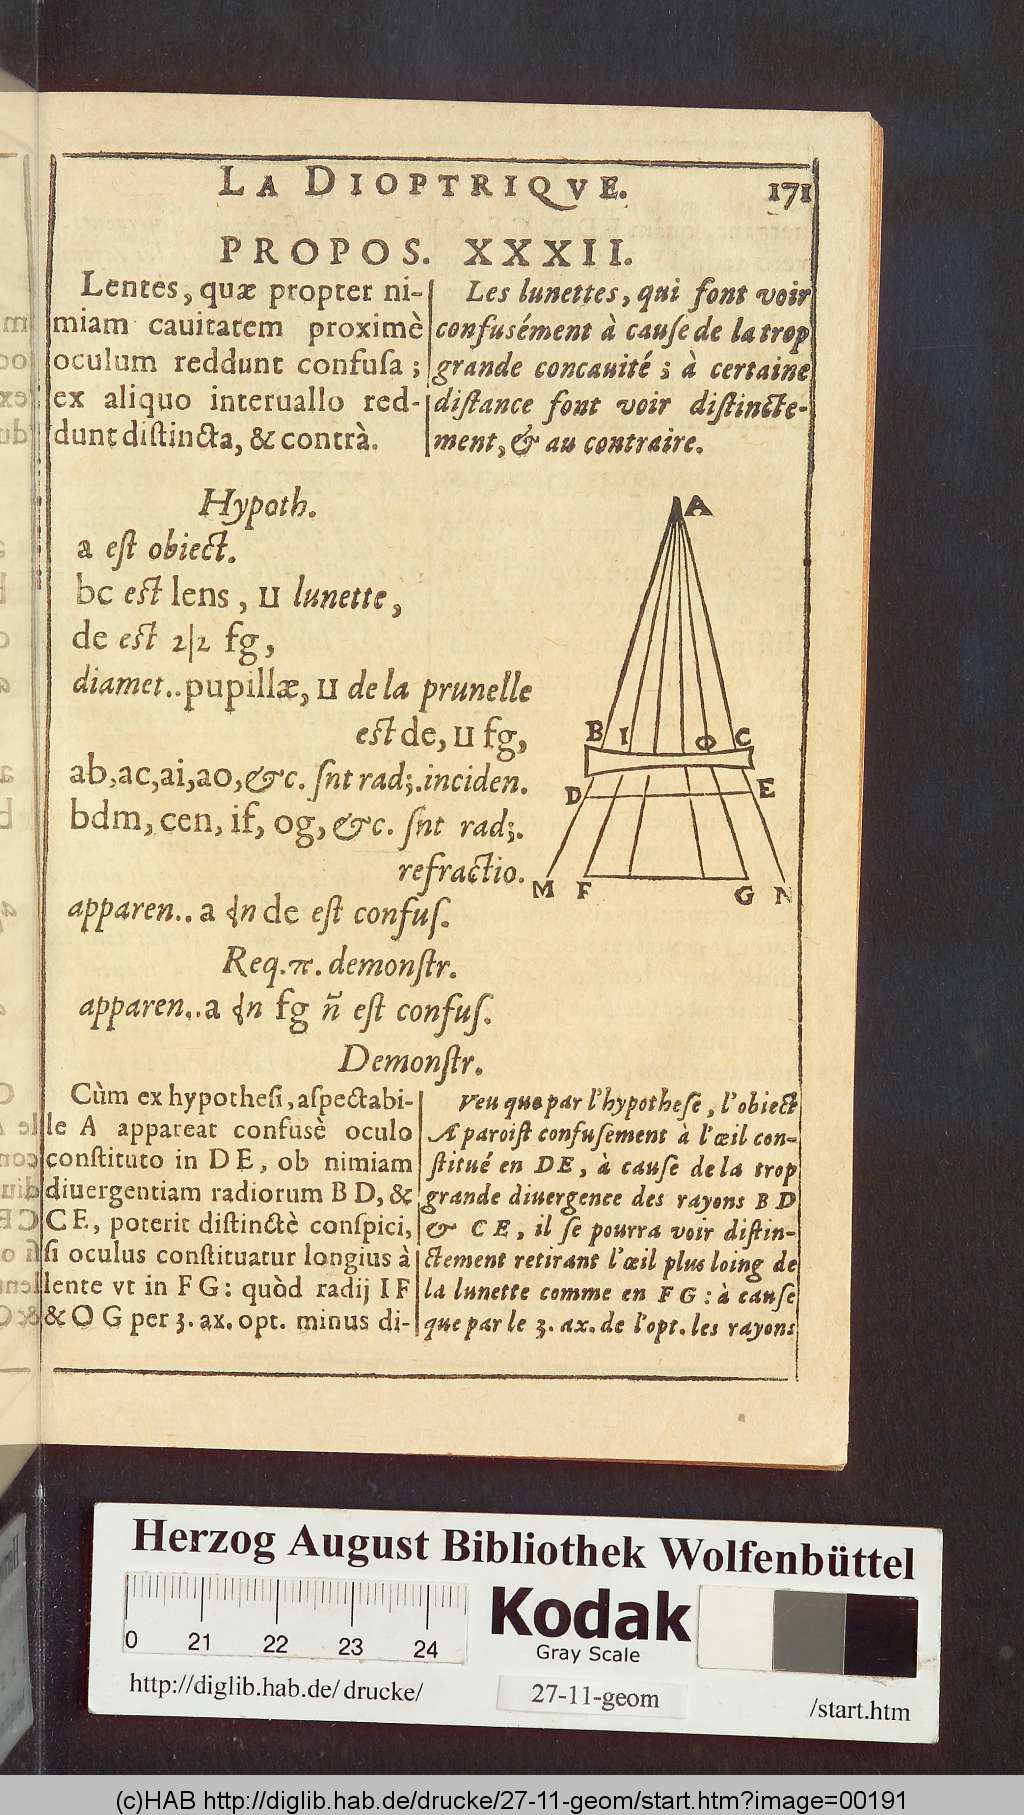 LA DIOPTRIQVE. 171
PROPOS. XXXII.
Lentes, quæ propter ni-
miam cauitatem proximè
oculum reddunt confuſa;
ex aliquo interuallo red-
dunt diſtincta, & contrà.
Les lunettes, qui font voir
confusément à cauſe de la trop
grande concauité; à certaine
diſtance font voir diſtincte-
ment, & au contraire.
Hypoth.
a eſt obiect.
bc eſt lens, ⊔ lunette,
de eſt 2|2 fg,
diamet.. pupillæ, ⊔ de la prunelle
eſt de, ⊔ fg,
ab, ac, ai, ao, &c. ſnt rad;. inciden.
bdm, cen, if, og, &c. ſnt rad;.
refractio.
apparen.. a dn de eſt confuſ.
Req. π. demonſtr.
apparen.. a dn fg ñ eſt confuſ.
A
B I O C
D E
M F G N
Demonſtr.
Cùm ex hypotheſi, aſpectabi-
le A appareat confusè oculo
conſtituto in DE, ob nimiam
diuergentiam radiorum BD, &
CE, poterit diſtinctè conſpici,
ſi oculus conſtituatur longius à
lente vt in FG: quòd radij IF
& OG per 3. ax. opt. minus di-
Veu que par l'hypotheſe, l'obiect
A paroiſt confuſement à l'œil con-
ſtitué en DE, à cauſe de la trop
grande diuergence des rayons BD
& CE, il ſe pourra voir diſtin-
ctement retirant l'œil plus loing de
la lunette comme en FG: à cauſe
que par le 3. ax. de l'opt. les rayons
Herzog August Bibliothek Wolfenbüttel
0 21 22 23 24
Kodak
Gray Scale
http://diglib.hab.de/drucke/
27-11-geom
/start.htm
(c)HAB http://diglib.hab.de/drucke/27-11-geom/start.htm?image=00191